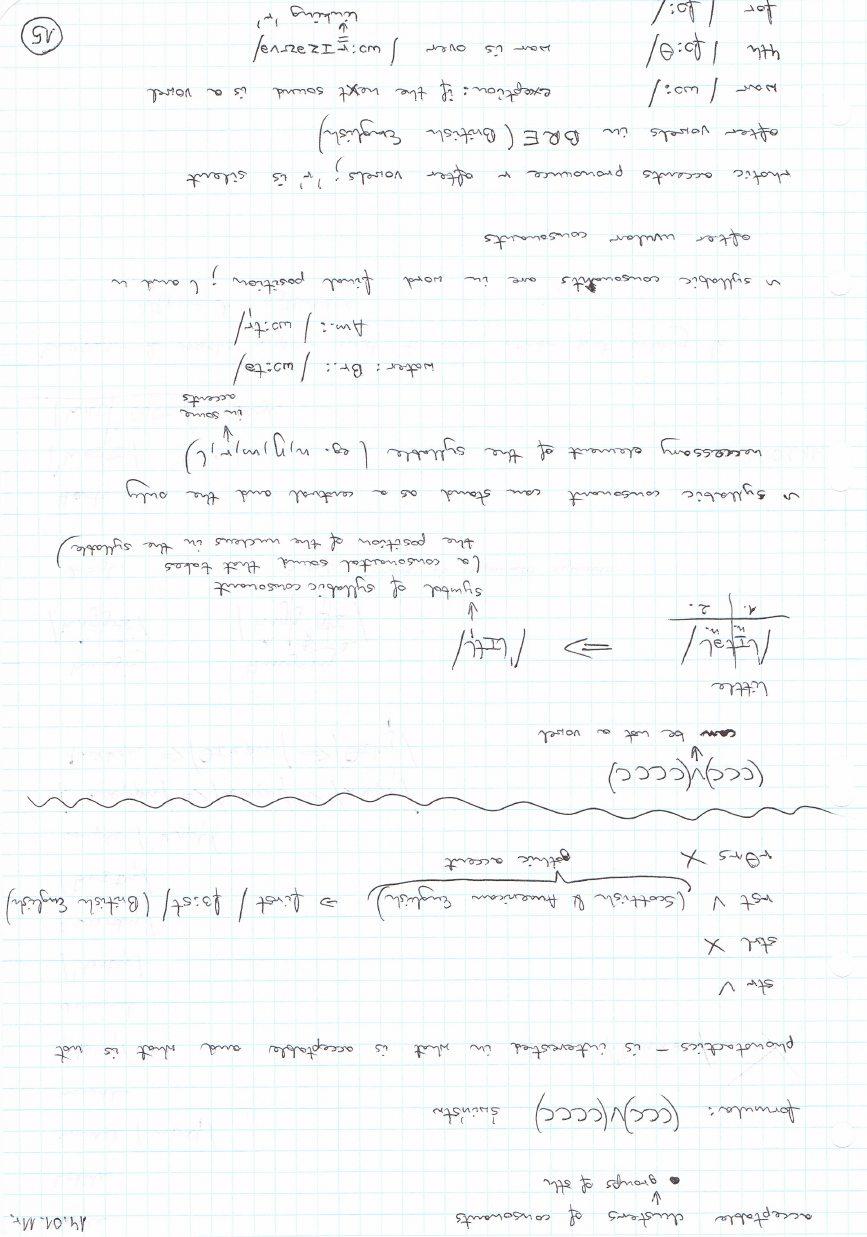 14.01.11r.
acceptable clusters of consonants
↓
groups of sth
formula: (CCC)V(CCCC)
phonotactics – is interested in what is acceptable and what is not
str V
stl X
rst V (Scottish & American English) ⇒ first /fɜ:st/ (British English)
rθrs X accent
(CCC)V(CCCC)
↓
can be not a vowel
little
/ˈlɪtəl/ ⇒ /ˈlɪtl̩/
n. n.
1. | 2.
↓
symbol of syllabic consonant
(a consonantal sound that takes
the position of the nucleus in the syllable)
~ syllabic consonant can stand as a central and the only
neccessary element of the syllable (eg. n, ŋ, m, r, l)
↓
in some
accents
water: Br.: /wɔ:tə/
Am.: /wɔ:tr̩/
~ syllabic consonants are in word final position; l and n
after uvular consonants
rhotic accents pronounce r after vowels; 'r' is silent
after vowels in BRE (British English)
war /wɔ:/ exception: if the next sound is a vowel
4th /fɔ:θ/ war is over /wɔ:rɪzəʊvə/
for /fɔ:/ linking 'r'
15